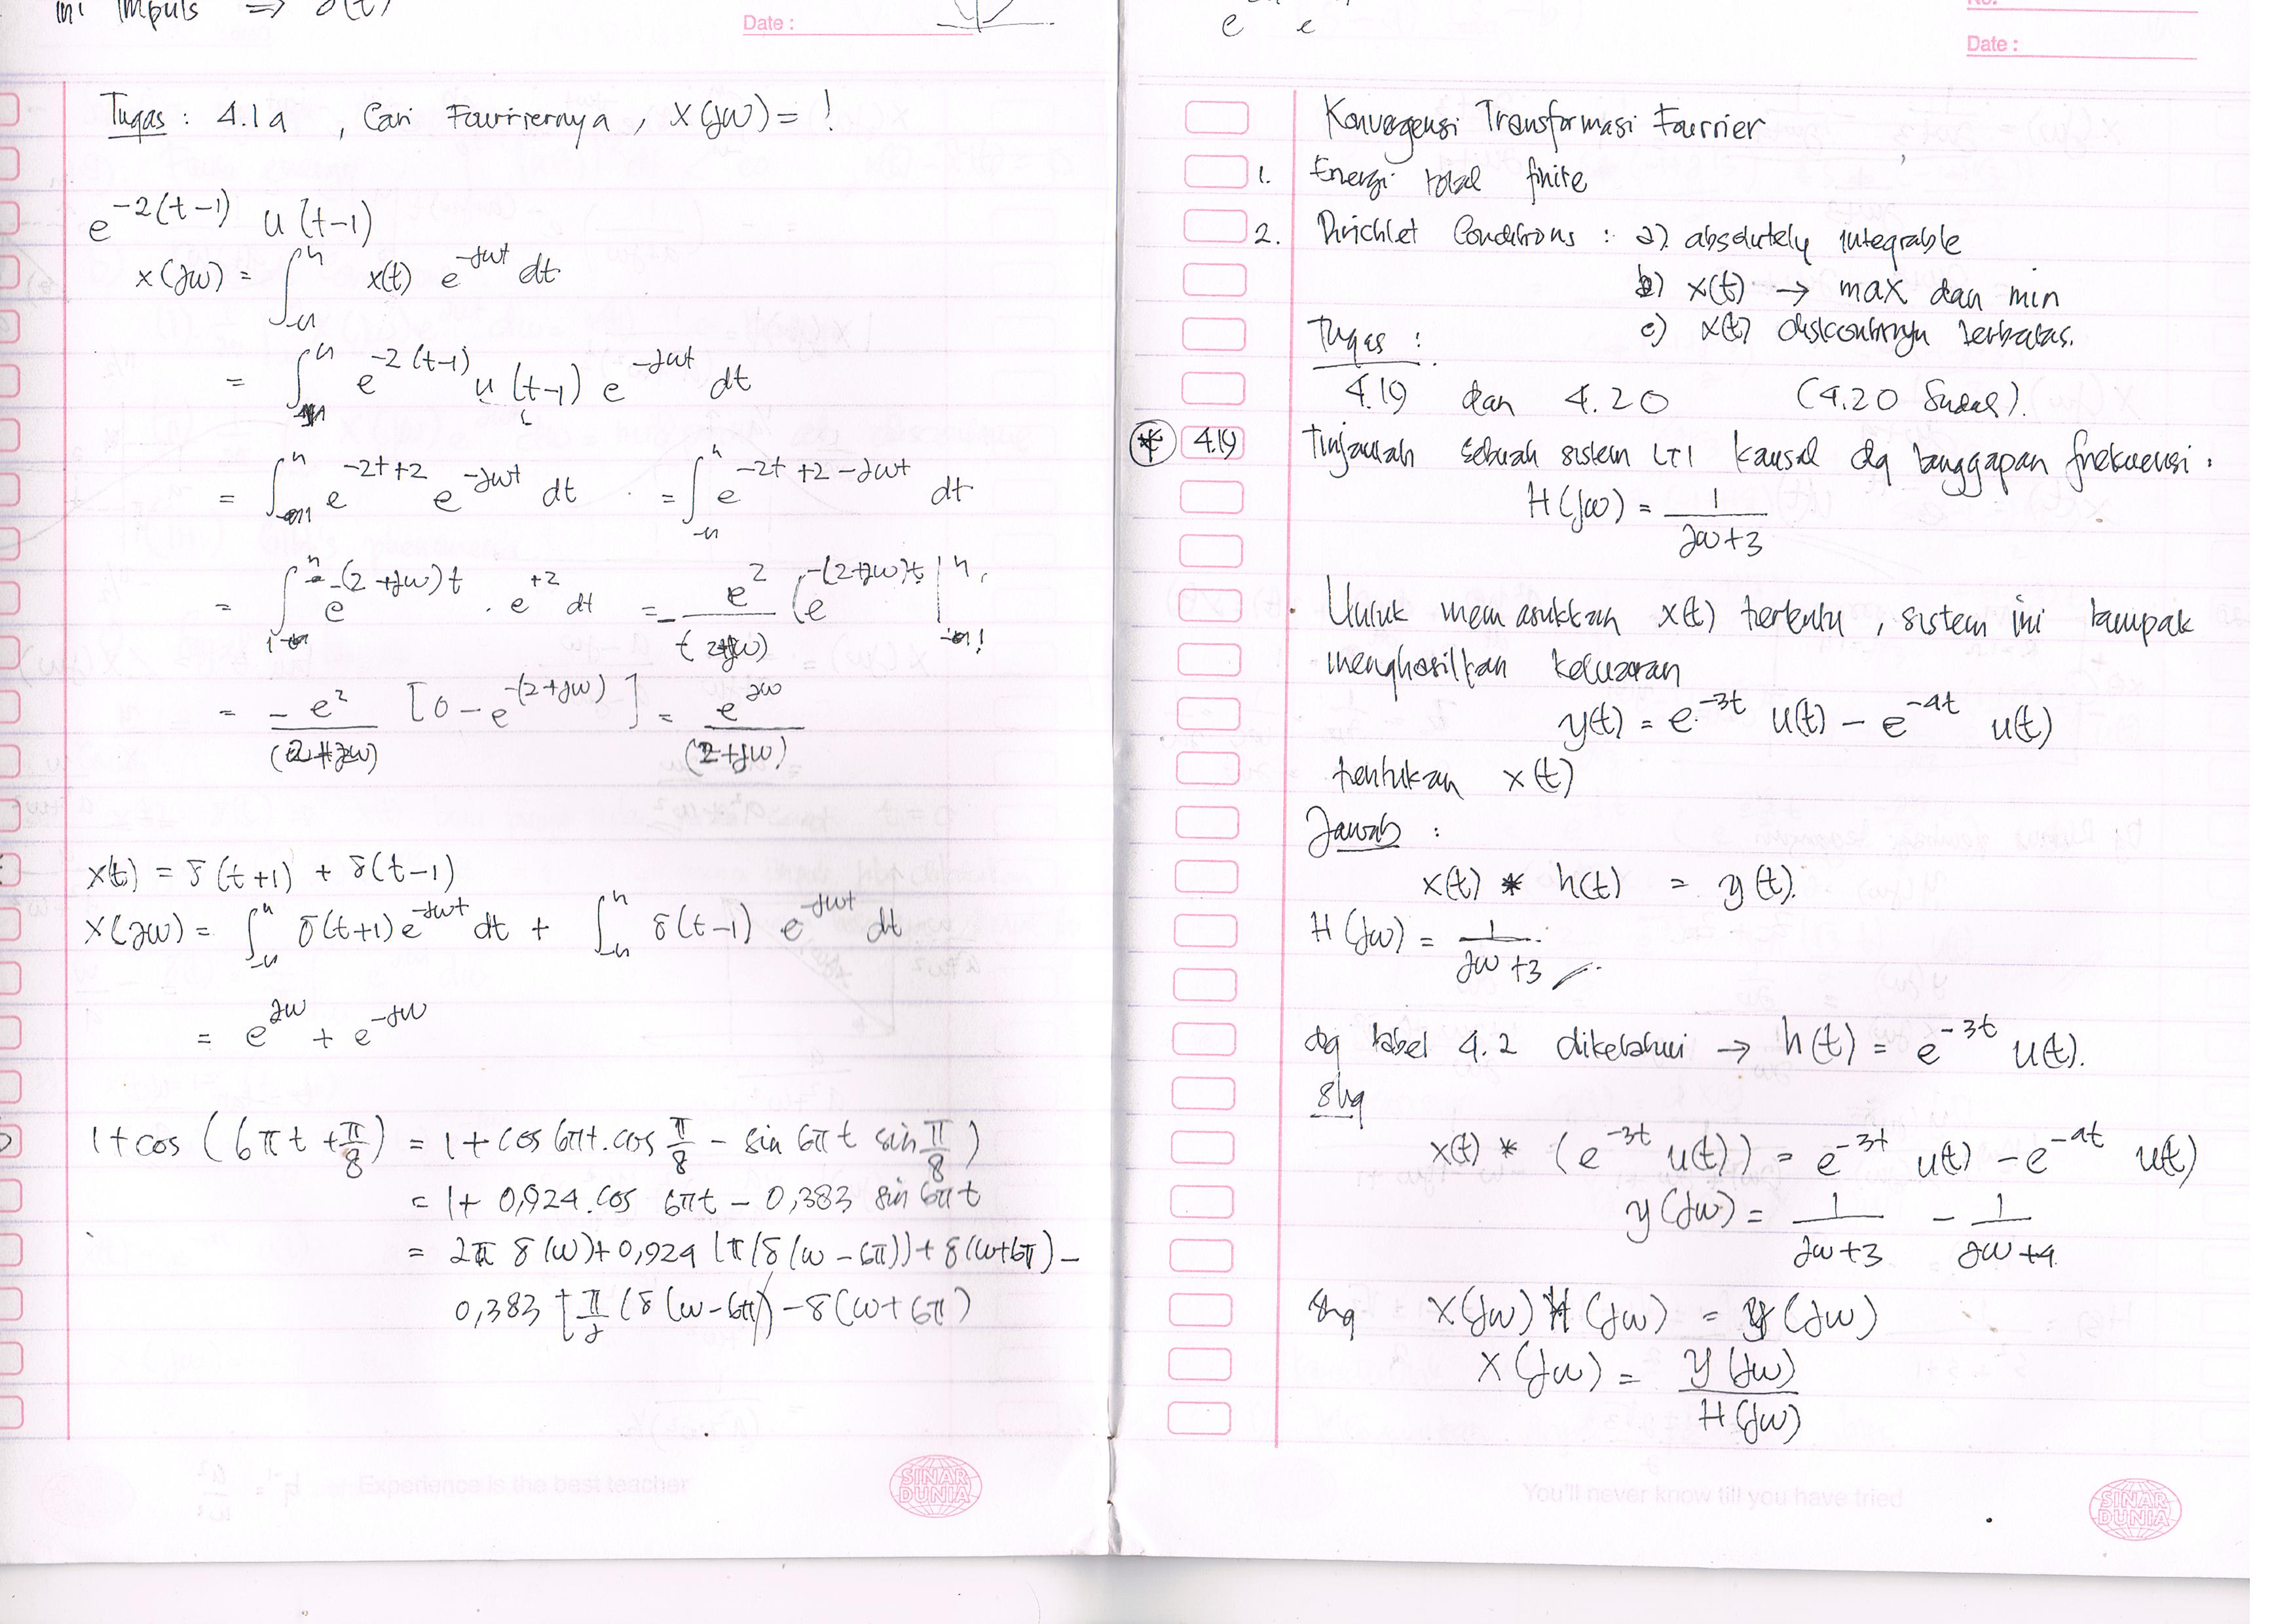 ini impuls ⇒ δ(t)
Date :
Tugas : 4.1a , Cari Fourriernya , X(jω) = !
e^{-2(t-1)} u(t-1)
x(jω) = ∫_{-n}^{n} x(t) e^{-jωt} dt
= ∫^{n} e^{-2(t-1)} u(t-1) e^{-jωt} dt
= ∫^{n} e^{-2t+2} e^{-jωt} dt = ∫_{-n}^{n} e^{-2t+2-jωt} dt
= ∫_{1}^{n} e^{-(2+jω)t} . e^{+2} dt = - e^2/(2+jω) (e^{-(2+jω)t} |_{1}^{n}
= - e^2/(2+jω) [0 - e^{-(2+jω)}] = e^{jω}/(2+jω)
x(t) = δ(t+1) + δ(t-1)
X(jω) = ∫_{-n}^{n} δ(t+1) e^{-jωt} dt + ∫_{-n}^{n} δ(t-1) e^{-jωt} dt
= e^{jω} + e^{-jω}
1+cos (6πt + π/8) = 1 + cos 6πt . cos π/8 - sin 6πt sin π/8)
= 1 + 0,924 . cos 6πt - 0,383 sin 6πt
= 2π δ(ω) + 0,924 (π(δ(ω-6π)) + δ(ω+6π) -
0,383 [π/j (δ(ω-6π)) - δ(ω+6π)
Experience is the best teacher
SINAR DUNIA
e e
No.
Date :
Konvergensi Transformasi Fourrier
1. Energi total finite
2. Dirichlet Conditions : a) absolutely integrable
b) x(t) → max dan min
c) x(t) diskontinyu terbatas.
Tugas :
4.19 dan 4.20 (4.20 Sudah).
* 4.19 Tinjaulah sebuah sistem LTI kausal dg tanggapan frekuensi :
H(jω) = 1/(jω+3)
Untuk memasukkan x(t) tertentu , sistem ini tampak
menghasilkan keluaran
y(t) = e^{-3t} u(t) - e^{-4t} u(t)
tentukan x(t)
Jawab :
x(t) * h(t) = y(t).
H(jω) = 1/(jω+3)
dg tabel 4.2 diketahui → h(t) = e^{-3t} u(t).
Shg
x(t) * (e^{-3t} u(t)) = e^{-3t} u(t) - e^{-4t} u(t)
y(jω) = 1/(jω+3) - 1/(jω+4)
shg X(jω) H(jω) = Y(jω)
X(jω) = Y(jω)/H(jω)
You'll never know till you have tried
SINAR DUNIA